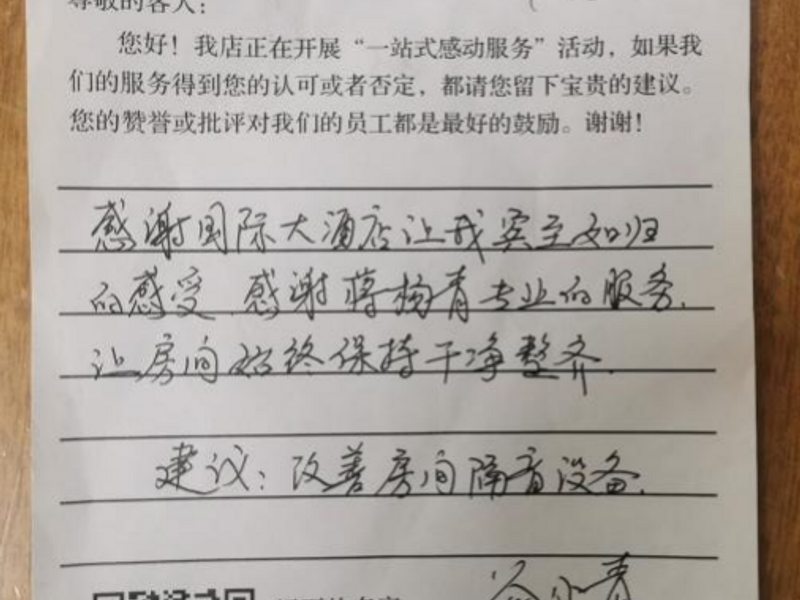 尊敬的客人：
您好！我店正在开展“一站式感动服务”活动，如果我
们的服务得到您的认可或者否定，都请您留下宝贵的建议。
您的赞誉或批评对我们的员工都是最好的鼓励。谢谢！
感谢国际大酒店让我宾至如归
的感受.感谢蒋杨青专业的服务.
让房间始终保持干净整齐.
建议：改善房间隔音设备.